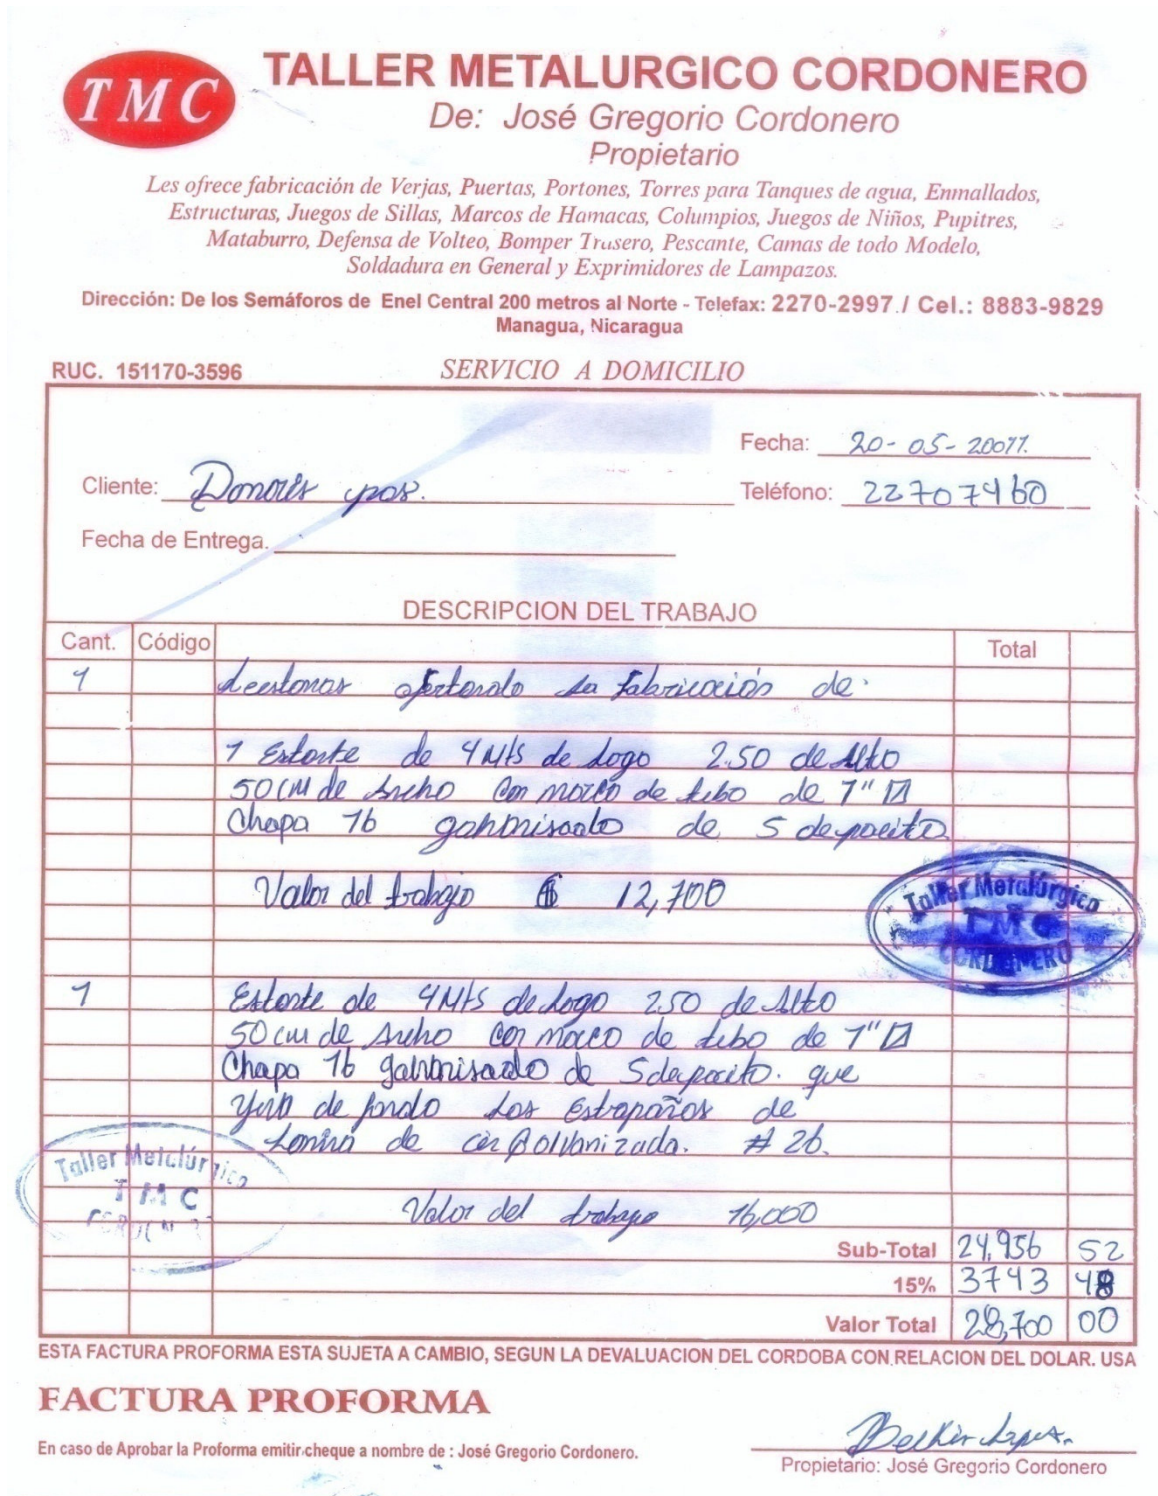 TMC
TALLER METALURGICO CORDONERO
De: José Gregorio Cordonero
Propietario
Les ofrece fabricación de Verjas, Puertas, Portones, Torres para Tanques de agua, Enmallados,
Estructuras, Juegos de Sillas, Marcos de Hamacas, Columpios, Juegos de Niños, Pupitres,
Mataburro, Defensa de Volteo, Bomper Trasero, Pescante, Camas de todo Modelo,
Soldadura en General y Exprimidores de Lampazos.
Dirección: De los Semáforos de Enel Central 200 metros al Norte - Telefax: 2270-2997 / Cel.: 8883-9829
Managua, Nicaragua
RUC. 151170-3596 SERVICIO A DOMICILIO
Fecha: 20-05-20011.
Cliente:
Teléfono: 22707460
Fecha de Entrega.
DESCRIPCION DEL TRABAJO
Cant. Código Total
1 ofertando la fabricación de:
1 Estante de 4 Mts de logo 2.50 de Alto
50 cm de Ancho Con marco de tubo de 1"
Chapa 16 galvanisado de 5 depocito
Valor del trabajo 12,700
Taller Metalúrgico
TMC
CORDONERO
1 Estante de 4 Mts de logo 2.50 de Alto
50 cm de Ancho con marco de tubo de 1"
Chapa 16 galvanisado de 5 depocito. que
de fondo los
de Galvanizada. # 26.
Taller Metalúrgico
TMC
CORDONERO
Valor del trabajo 16,000
Sub-Total 24,956 52
15% 3743 48
Valor Total 28,700 00
ESTA FACTURA PROFORMA ESTA SUJETA A CAMBIO, SEGUN LA DEVALUACION DEL CORDOBA CON RELACION DEL DOLAR. USA
FACTURA PROFORMA
En caso de Aprobar la Proforma emitir cheque a nombre de : José Gregorio Cordonero.
Propietario: José Gregorio Cordonero